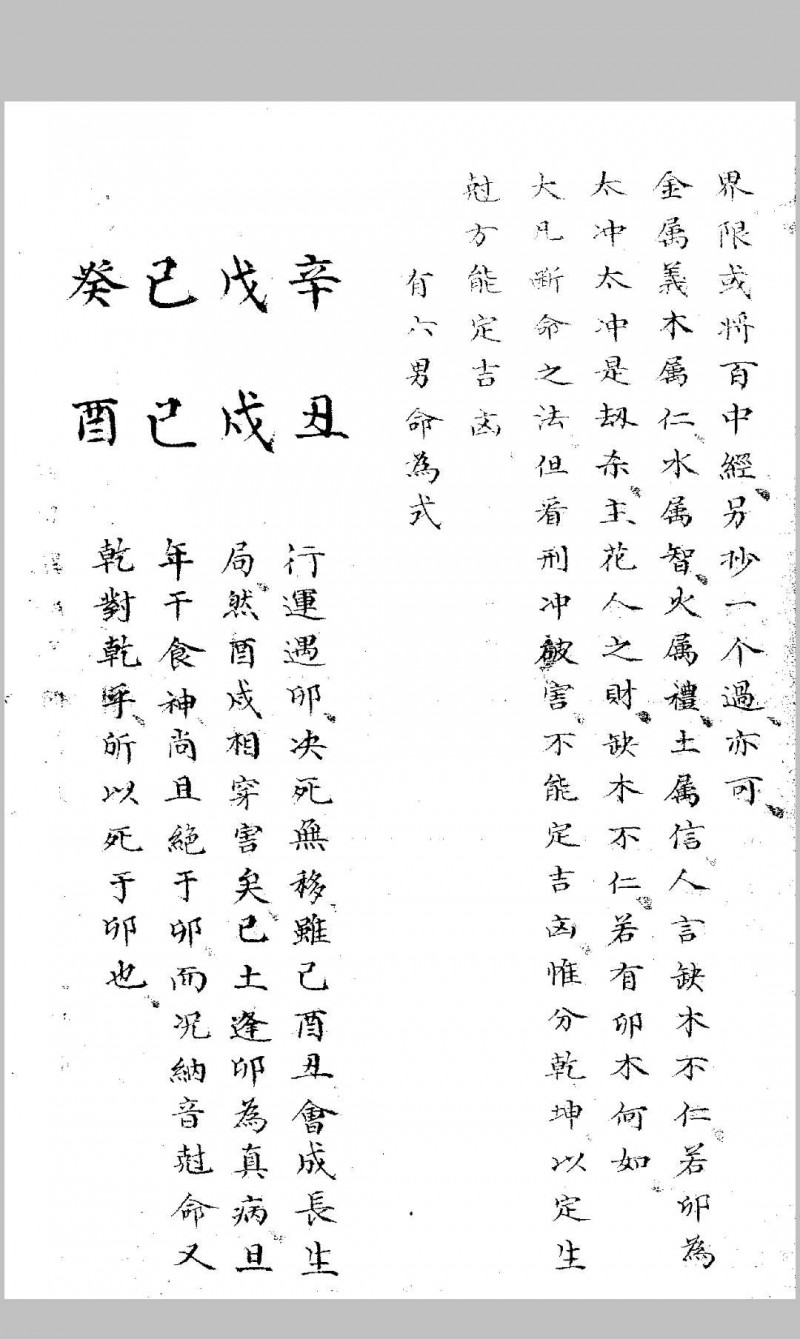 界限或将百中經另抄一个過亦可
金属義木属仁水属智火属禮土属信人言缺木不仁若卯為
太冲太冲是劫杀主花人之財缺木不仁若有卯木何如
大凡断命之法但看刑冲破害不能定吉凶惟分乾坤以定生
尅方能定吉凶
有六男命為式
辛丑
戊戌
己巳
癸酉
行運遇卯决死無移雖巳酉丑會成長生
局然酉戌相穿害矣己土逢卯為真病且
年干食神尚且絕于卯而况納音尅命又
乾對乾乎所以死于卯也